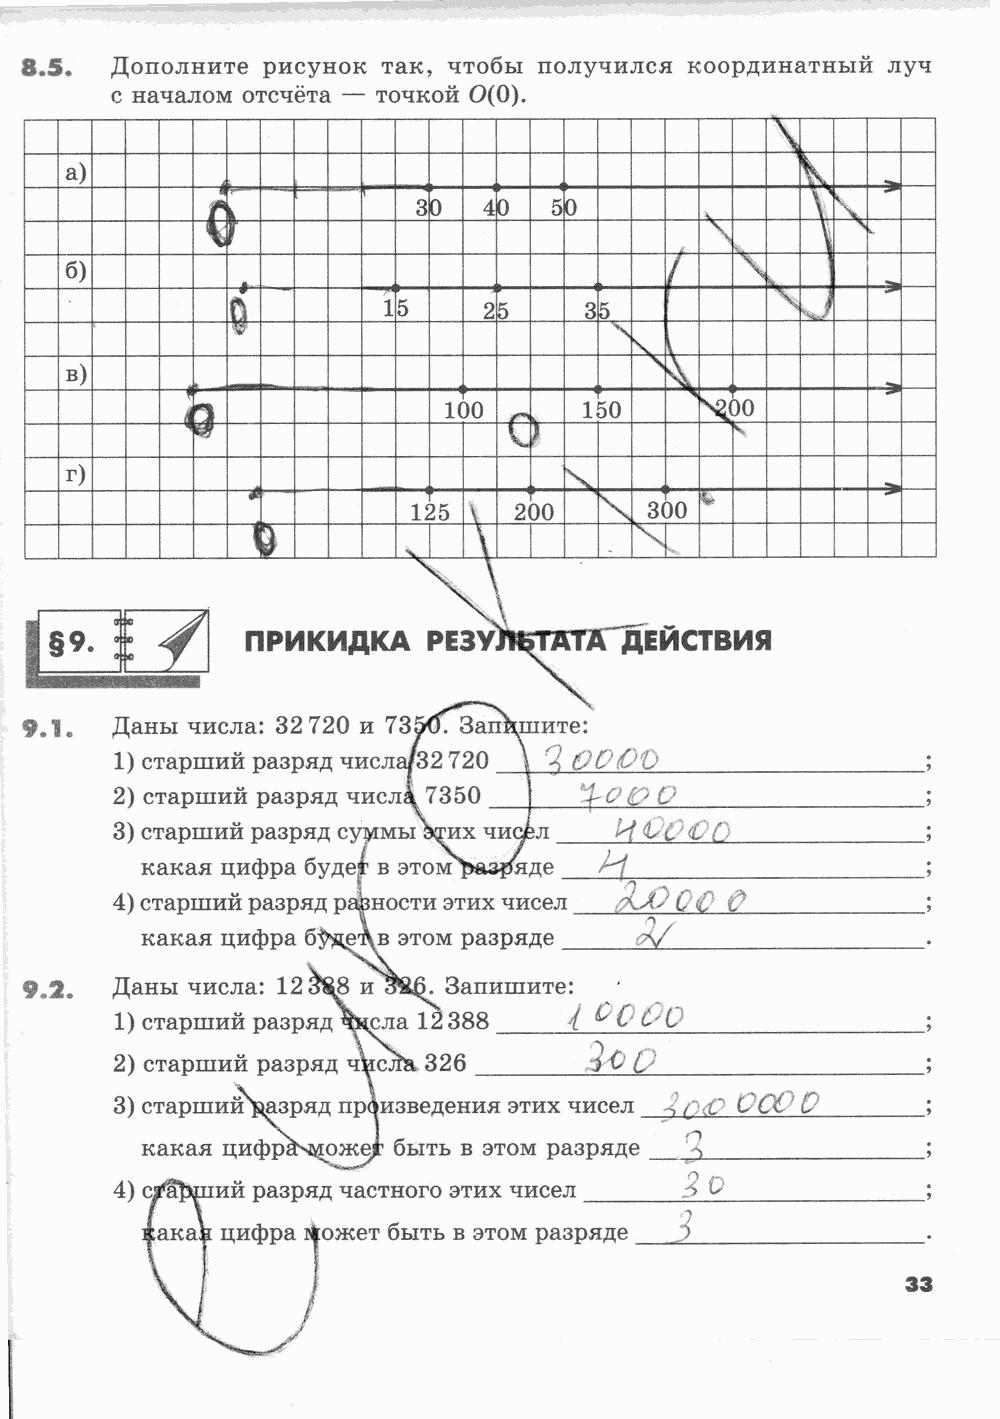 8.5. Дополните рисунок так, чтобы получился координатный луч
с началом отсчёта — точкой O(0).
а)
30 40 50
0
б)
15 25 35
0
в)
100 150 200
0
г)
125 200 300
0
§9. ПРИКИДКА РЕЗУЛЬТАТА ДЕЙСТВИЯ
9.1. Даны числа: 32 720 и 7350. Запишите:
1) старший разряд числа 32 720 30000;
2) старший разряд числа 7350 7000;
3) старший разряд суммы этих чисел 40000;
какая цифра будет в этом разряде 4;
4) старший разряд разности этих чисел 20000;
какая цифра будет в этом разряде 2.
9.2. Даны числа: 12 388 и 326. Запишите:
1) старший разряд числа 12 388 10000;
2) старший разряд числа 326 300;
3) старший разряд произведения этих чисел 3000000;
какая цифра может быть в этом разряде 3;
4) старший разряд частного этих чисел 30;
какая цифра может быть в этом разряде 3.
33